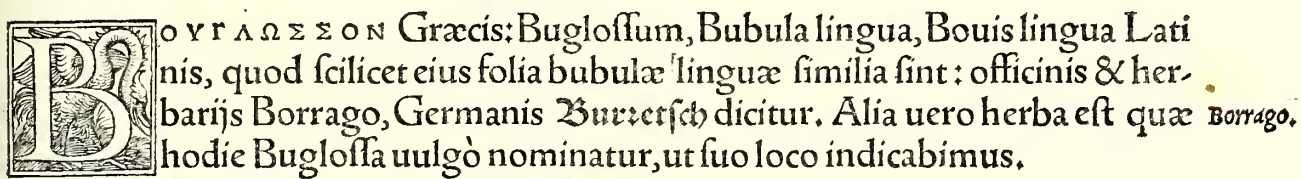 BOVΓΛΩΣΣON Græcis: Bugloſſum, Bubula lingua, Bouis lingua Lati
nis, quod ſcilicet eius folia bubulæ linguæ ſimilia ſint: officinis & her-
barijs Borrago, Germanis Burretſch dicitur. Alia uero herba eſt quæ
hodie Bugloſſa uulgò nominatur, ut ſuo loco indicabimus.
Borrago.